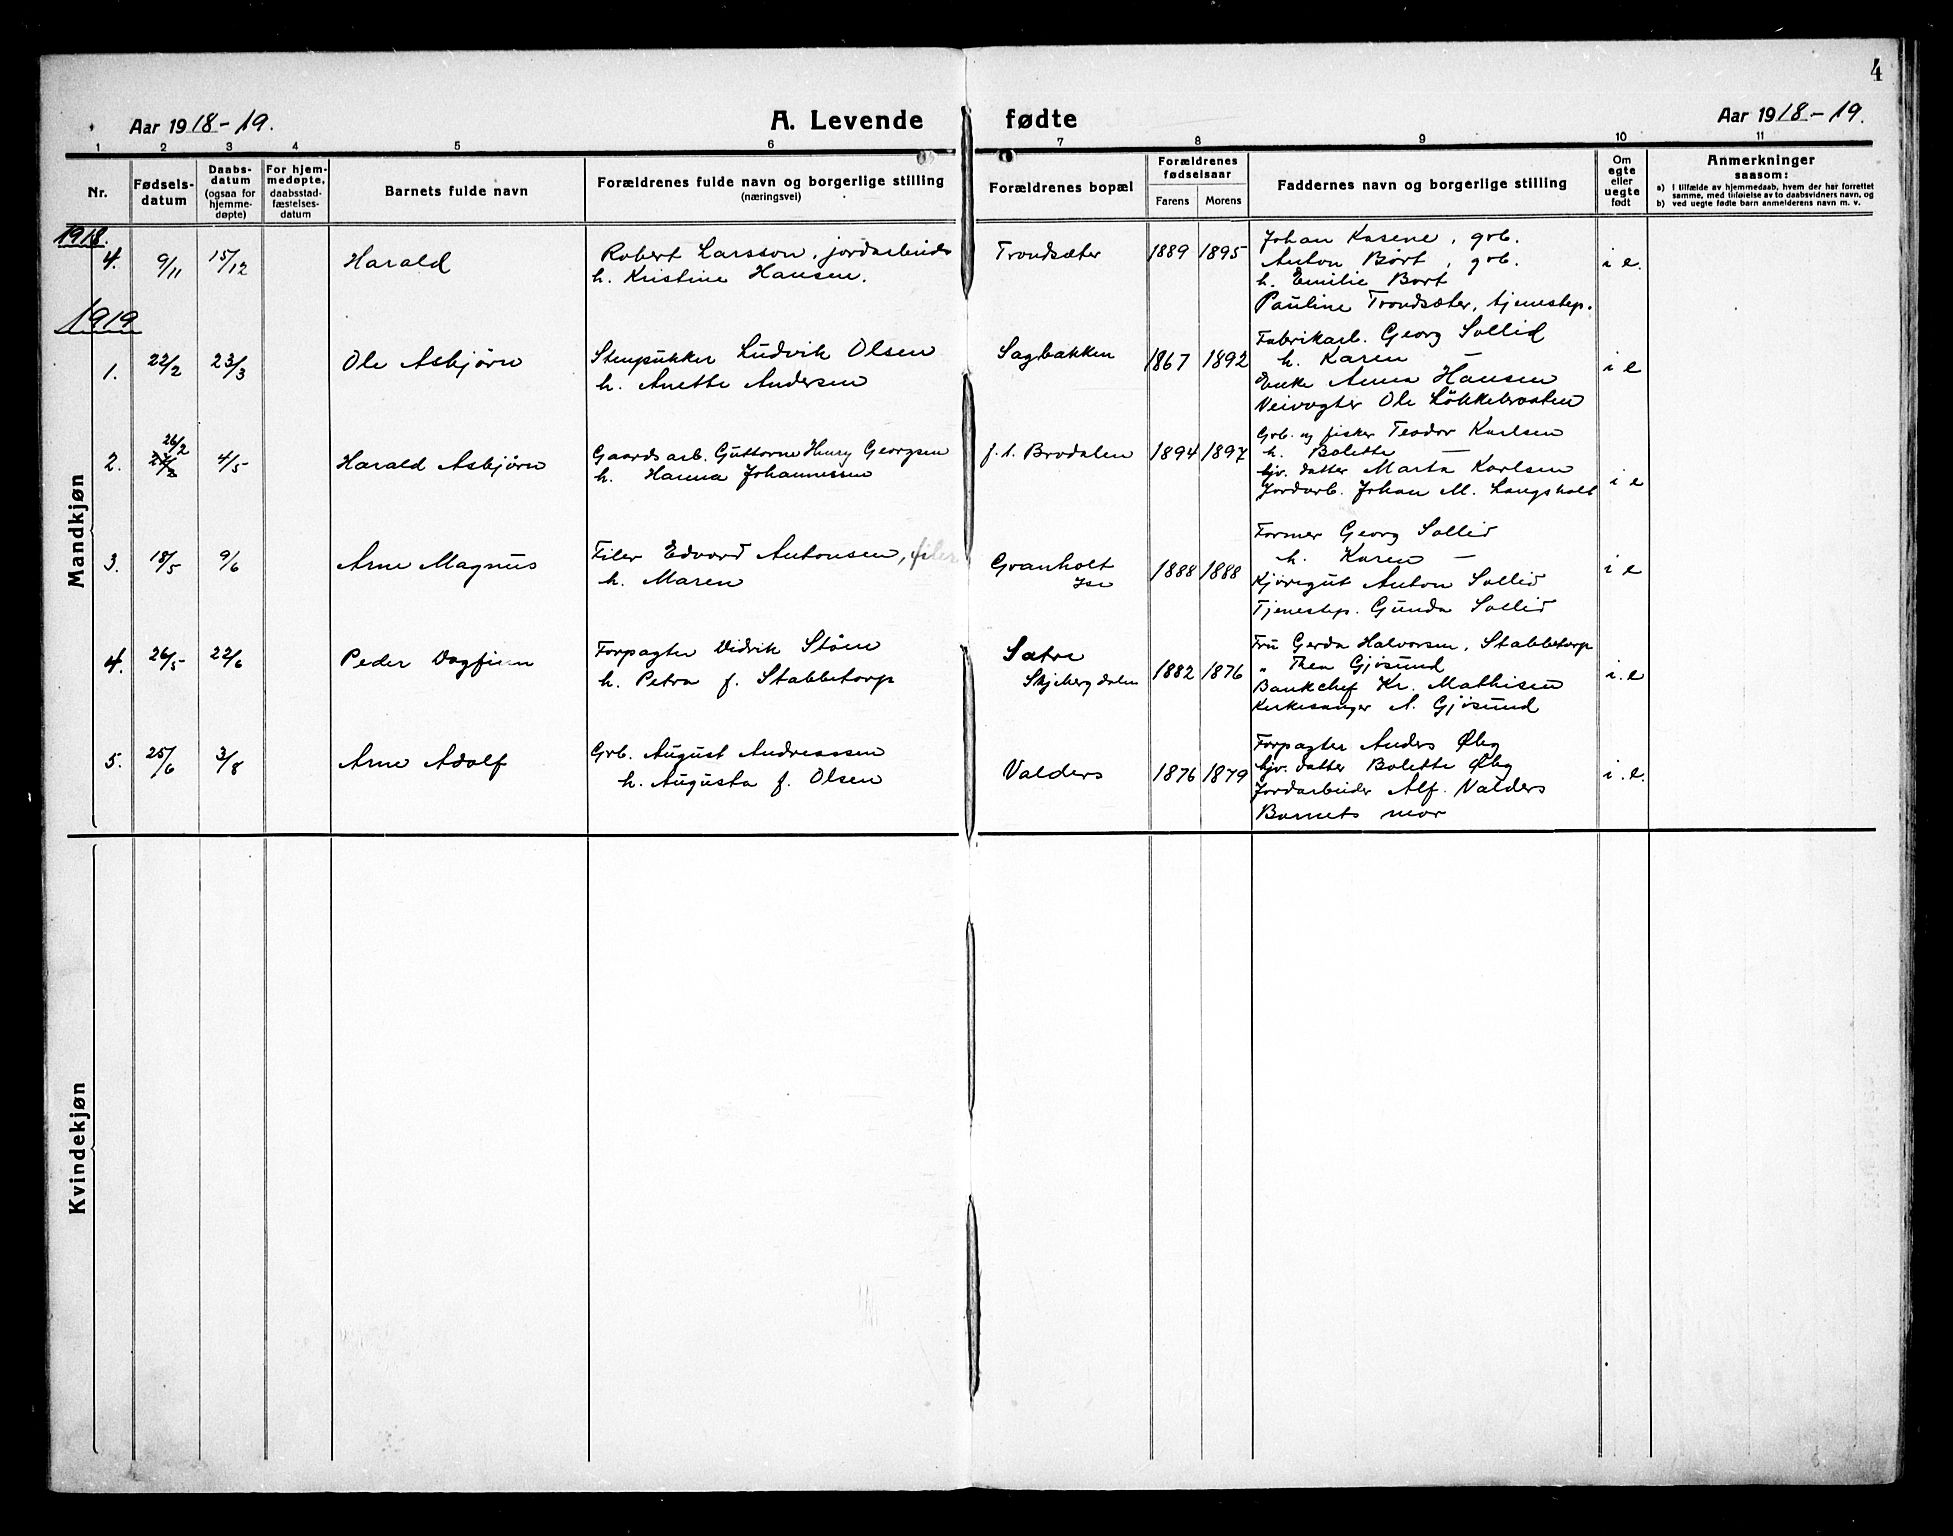 4
Aar 1918-19.
A. Levende fødte
Aar 1918-19.
1 2 3 4 5 6 7 8 9 10 11
Nr.
Fødsels-
datum
Daabs-
datum
(ogsaa for
hjemme-
døpte)
For hjem-
medøpte,
daabsstad-
fæstelses-
datum
Barnets fulde navn
Forældrenes fulde navn og borgerlige stilling
(næringsvei)
Forældrenes bopæl
Forældrenes
fødselsaar
Farens Morens
Faddernes navn og borgerlige stilling
Om
ægte
eller
uegte
født
Anmerkninger
saasom:
a) I tilfælde av hjemmedaab, hvem der har forrettet
samme, med tilføielse av to daabsvidners navn, og
b) ved uegte fødte barn anmelderens navn m. v.
Mandkjøn
1918.
4. 9/11 15/12 Harald
Robert Larsson, jordarbeider
h. Kristine Hansen.
Trondsæter 1889 1895
Johan Kasene, grb.
Anton Børt, grb.
h. Emilie Børt
Pauline Trondsæter, tjenestep.
i e.
1919
1. 22/2 23/3 Ole Asbjørn
Stenpukker Ludvik Olsen
h. Anette Andersen
Sagbakken 1867 1892
Fabrikarb. Georg Sollid
h. Karen —
Enke Anna Hansen
Veivogter Ole Løkkebraaten
i e
2. 26/2 4/5 Harald Asbjørn
Gaardsarb. Guttorm Henry Georgsen
h. Hanna Johannessen
f. t. Brodalen 1894 1897
Grb. og fisker Teodor Karlsen
h. Bolette —
hjv. datter Marta Karlsen
Jordarb. Johan M. Langsholt
i e
3. 18/5 9/6 Arne Magnus
Filer Edvard Antonsen, filer
h. Maren
Granholt
Ise
1888 1888
Former Georg Sollid
h. Karen —
Kjøregut Anton Sollid
Tjenestep. Gunda Sollid
i e
4. 26/5 22/6 Peder Dagfinn
Forpagter Didrik Støen
h. Petra f. Stabbetorp
Sætre
Skjebergdalen
1882 1876
Fru Gerda Halvorsen, Stabbetorp
" Thea Gjøsund
Bankchef Kr. Mathisen
Kirkesanger A. Gjøsund
i.e
5. 25/6 3/8 Arne Adolf
Grb. August Andreassen
h. Augusta f. Olsen
Valders 1876 1879
Forpagter Anders Øby
hjv. datter Bolette Øby
Jordarbeider Alf. Valders
Barnets mor
i.e.
Kvindekjøn